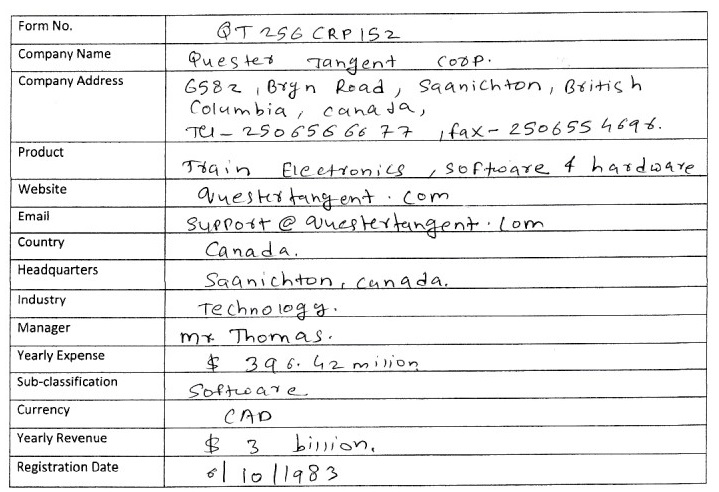 Form No. QT 256 CRP 152
Company Name Quester Tangent Corp.
Company Address 6582, Bryn Road, Saanichton, British
Columbia, Canada,
Tel - 250 656 66 77, fax - 250 655 4696.
Product Train Electronics, software & hardware
Website questertangent.com
Email support@questertangent.com
Country Canada.
Headquarters Saanichton, Canada.
Industry Technology.
Manager Mr Thomas.
Yearly Expense $ 396.42 million
Sub-classification Software
Currency CAD
Yearly Revenue $ 3 billion.
Registration Date 6/10/1983